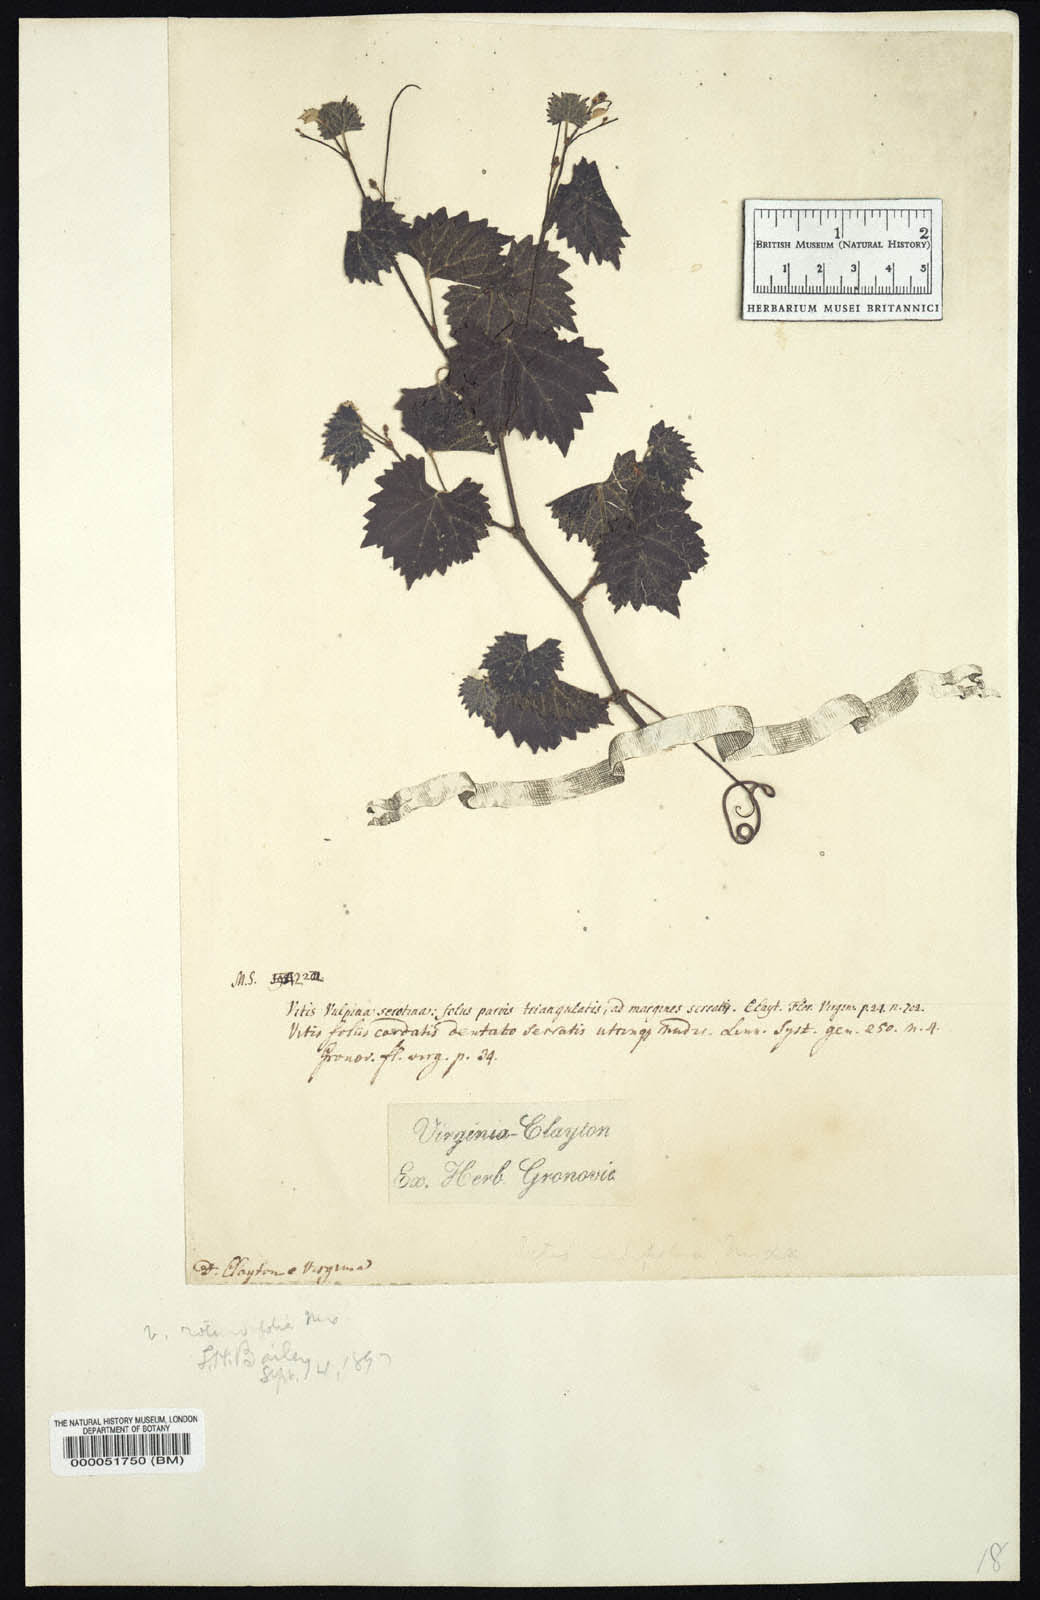 1 2
BRITISH MUSEUM (NATURAL HISTORY)
1 2 3 4 5
HERBARIUM MUSEI BRITANNICI
M.S.
Vitis Vulpina serotina: foliis parvis triangulatis, ad margines serratis. Clayt. Flor. Virgin. p. 24. n. 702.
Vitis foliis cordatis dentato serratis utrinq; nudis. Linn. Syst. gen. 250. n. 4.
Gronov. fl. virg. p. 34.
Virginia-Clayton
Ex. Herb. Gronovii
D. Clayton e Virginia
V. rotundifolia Mx
L.H. Bailey
Sept. 1897
THE NATURAL HISTORY MUSEUM, LONDON
DEPARTMENT OF BOTANY
000051750 (BM)
18